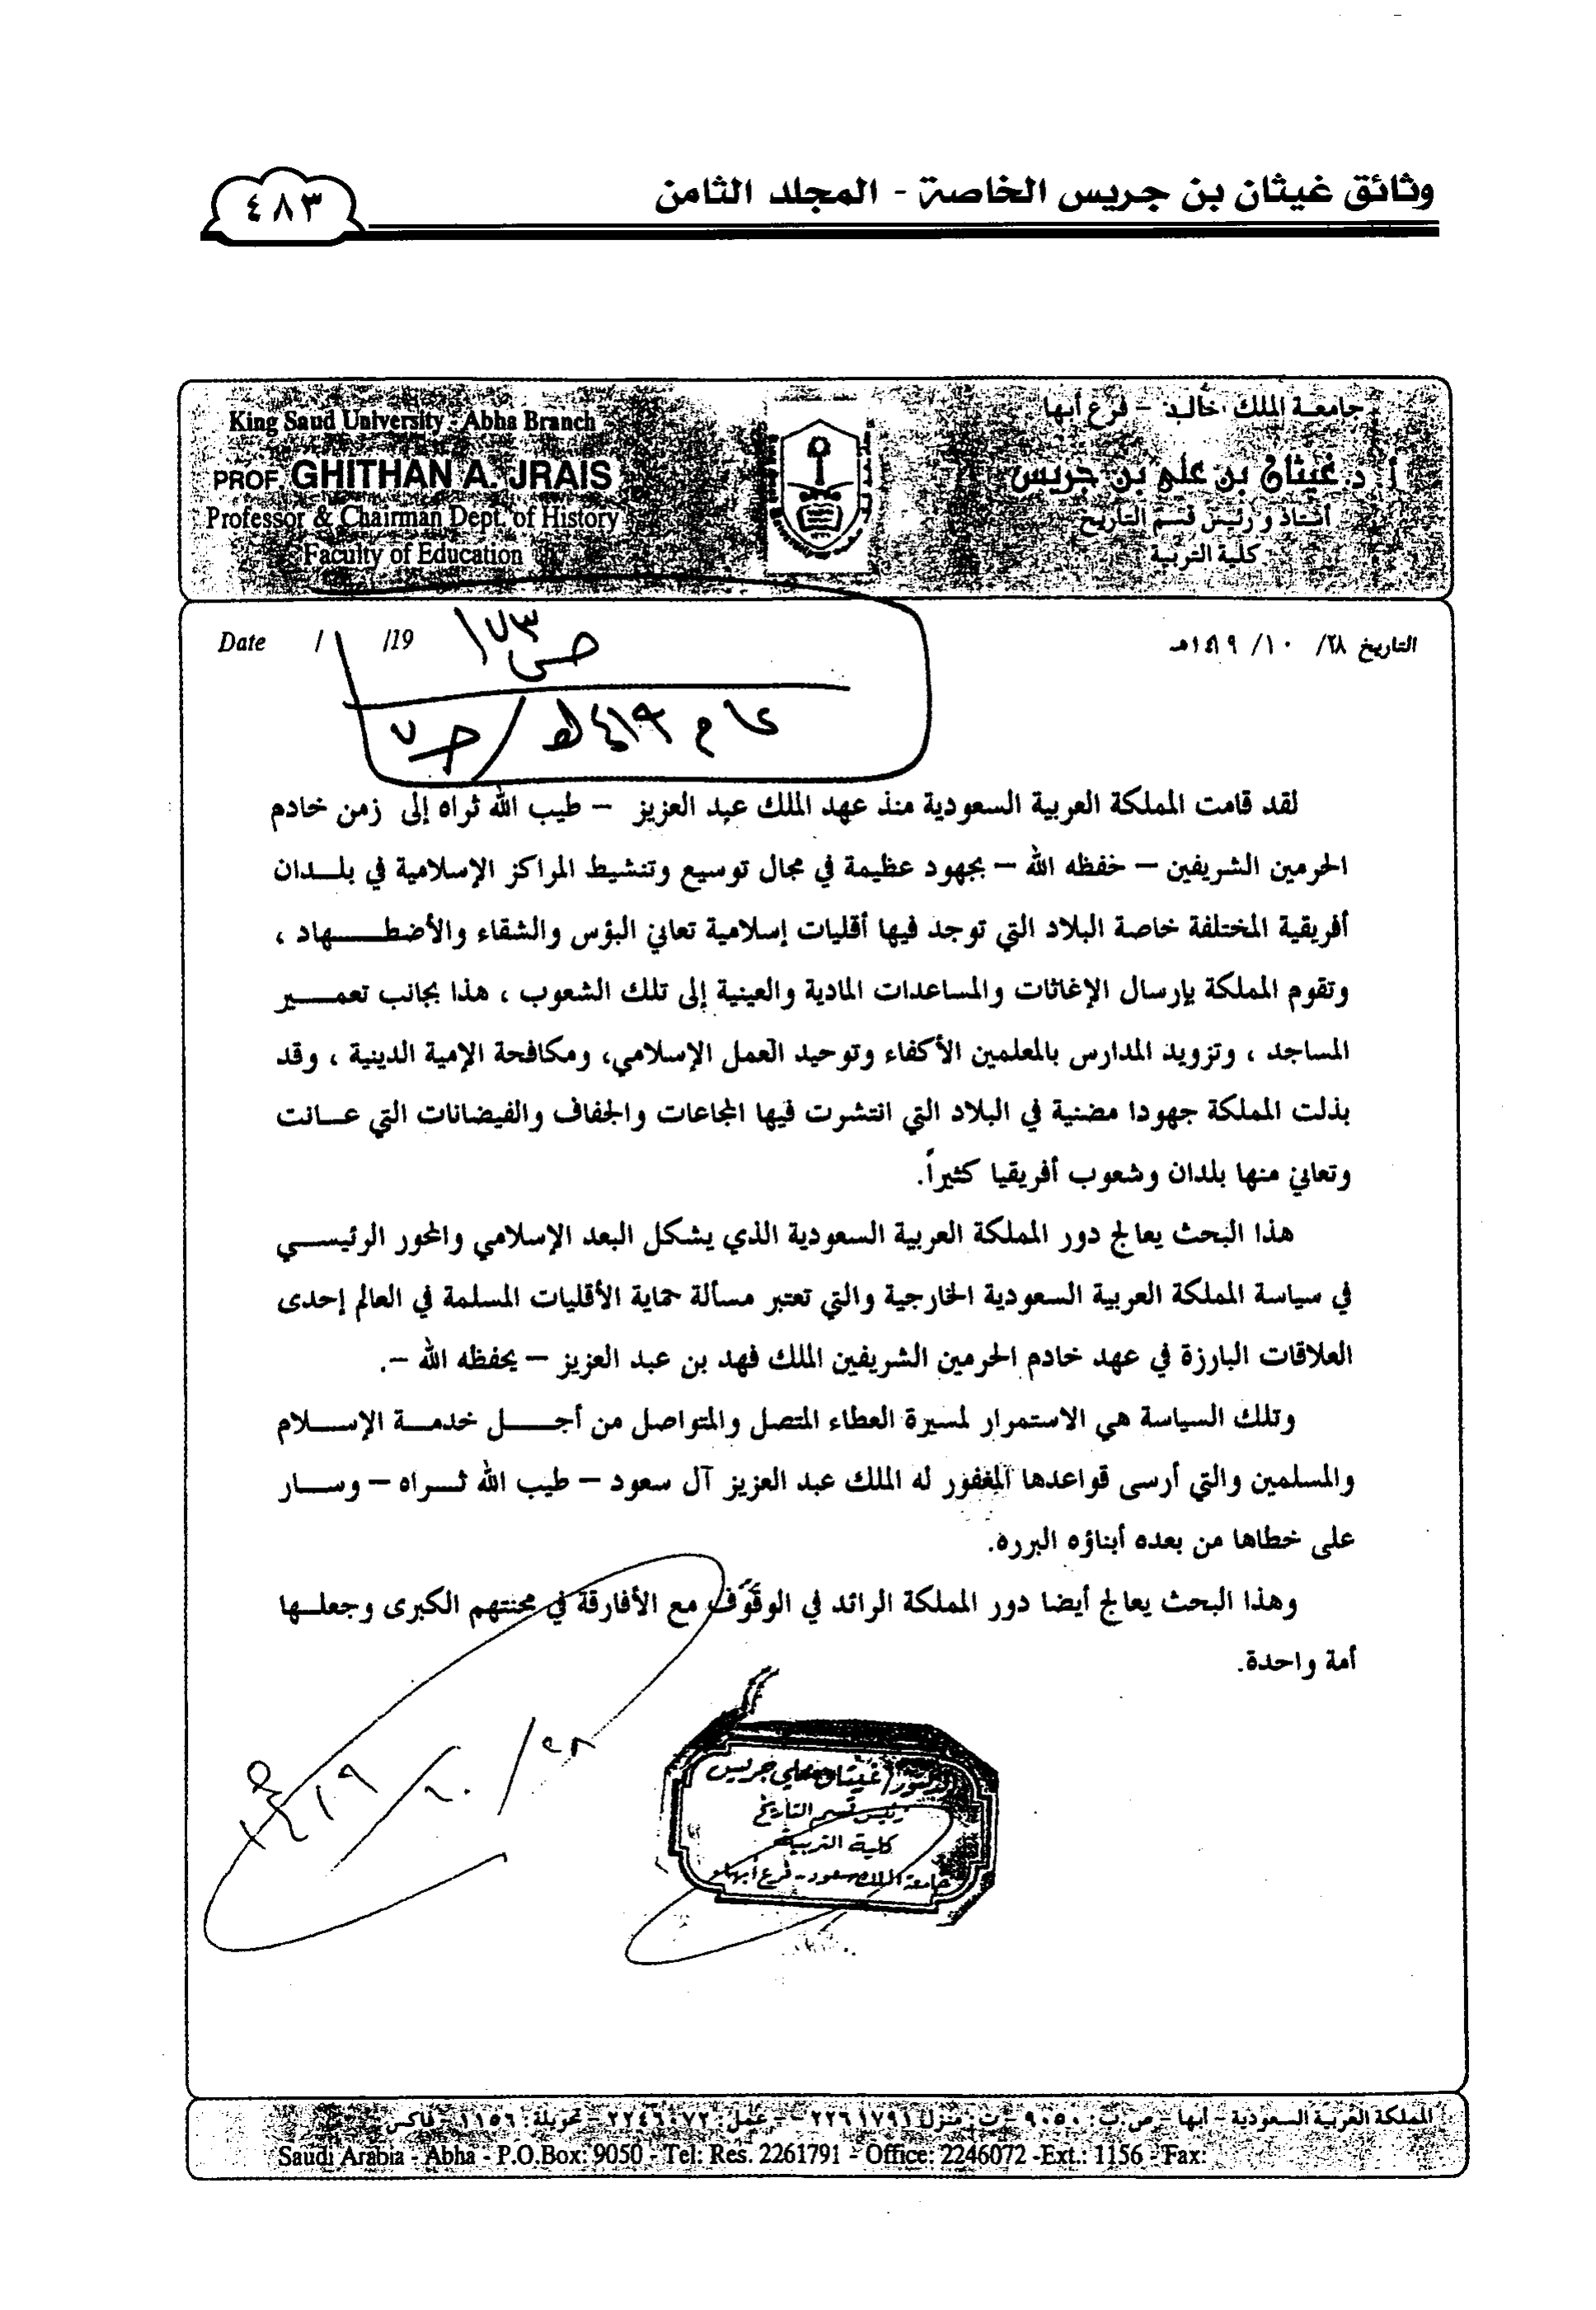 وثائق غيثان بن جريس الخاصة - المجلد الثامن
٤٨٣
جامعة الملك خالد - فرع أبها
أ. د. غيثان بن علي بن جريس
أستاذ ورئيس قسم التاريخ
كلية التربية
King Saud University - Abha Branch
PROF. GHITHAN A. JRAIS
Professor & Chairman Dept. of History
Faculty of Education
التاريخ ٢٨/ ١٠/ ١٤١٩هـ
Date / /19
ص ١٧٣
عام ١٤١٩هـ / جـ٧
لقد قامت المملكة العربية السعودية منذ عهد الملك عبد العزيز – طيب الله ثراه إلى زمن خادم
الحرمين الشريفين – خفظه الله – بجهود عظيمة في مجال توسيع وتنشيط المراكز الإسلامية في بلـــدان
أفريقية المختلفة خاصة البلاد التي توجد فيها أقليات إسلامية تعاني البؤس والشقاء والأضطـــــهاد ،
وتقوم المملكة بإرسال الإغاثات والمساعدات المادية والعينية إلى تلك الشعوب ، هذا بجانب تعمـــــير
المساجد ، وتزويد المدارس بالمعلمين الأكفاء وتوحيد العمل الإسلامي، ومكافحة الإمية الدينية ، وقد
بذلت المملكة جهودا مضنية في البلاد التي انتشرت فيها المجاعات والجفاف والفيضانات التي عـــانت
وتعاني منها بلدان وشعوب أفريقيا كثيراً.
هذا البحث يعالج دور المملكة العربية السعودية الذي يشكل البعد الإسلامي والمحور الرئيســـي
في سياسة المملكة العربية السعودية الخارجية والتي تعتبر مسألة حماية الأقليات المسلمة في العالم إحدى
العلاقات البارزة في عهد خادم الحرمين الشريفين الملك فهد بن عبد العزيز – يحفظه الله –.
وتلك السياسة هي الاستمرار لمسيرة العطاء المتصل والمتواصل من أجـــل خدمـــة الإســـلام
والمسلمين والتي أرسى قواعدها المغفور له الملك عبد العزيز آل سعود – طيب الله ثـــراه – وســـار
على خطاها من بعده أبناؤه البرره.
وهذا البحث يعالج أيضا دور المملكة الرائد في الوقوف مع الأفارقة في محنتهم الكبرى وجعلـــها
أمة واحدة.
٢٨/ ١٠/ ١٤١٩هـ
الدكتور/ غيثان علي جريس
رئيس قسم التاريخ
كلية التربية
جامعة الملك سعود - فرع أبها
المملكة العربية السعودية - أبها - ص.ب: ٩٠٥٠ - ت: منزل ٢٢٦١٧٩١ - عمل: ٢٢٤٦٠٧٢ - تحويلة: ١١٥٦ - فاكس
Saudi Arabia - Abha - P.O.Box: 9050 - Tel: Res. 2261791 - Office: 2246072 -Ext.: 1156 - Fax: